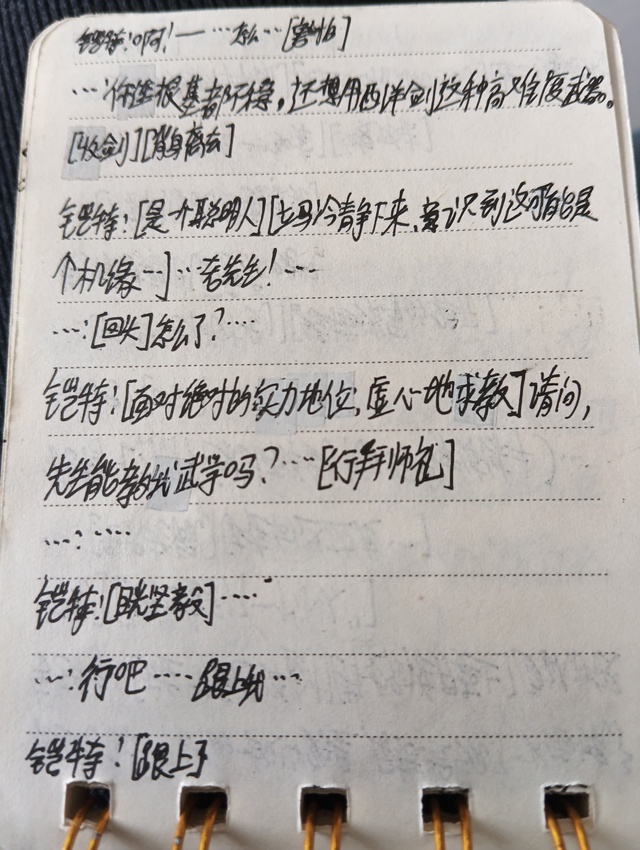 铠特:啊!一……怎么…[害怕]
…:你连根基都不稳,还想用西洋剑这种高难度武器。
[收剑][背身离去]
铠特:[是个聪明人][立马冷静下来,意识到这可能是
个机缘…]…老先生!…
…:[回头]怎么了?…
铠特:[面对绝对的实力地位,虚心地求教]请问,
先生能教我武学吗?…[行拜师礼]
…:……
铠特:[眼光坚毅]……
…:行吧……跟上我…
铠特:[跟上]